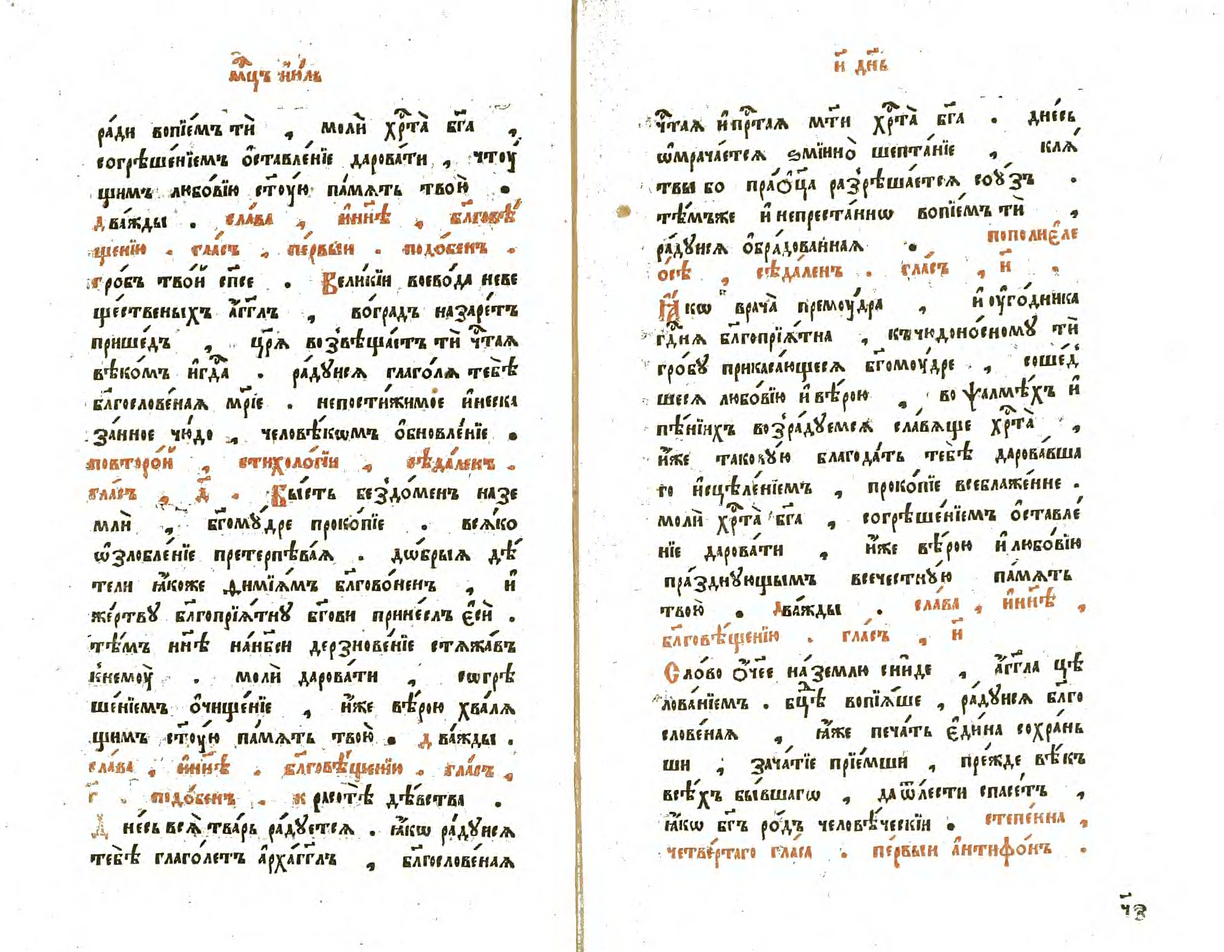 мⷭ҇цъ и҆ю́ль
ра́ди вопїе́мъ тѝ , молѝ хрⷭ҇та̀ бг҃а ,
согрѣше́нїемъ ѻ҆ставле́нїе дарова́ти , чтоу́
щимъ любо́вїю ст҃ую па́мѧть твою̀ .
два́жды . сла́ва , и҆ н҃нѣ , бл҃говѣ́
щенїю . гла́съ , пе́рвыи . подо́бенъ .
гро́бъ тво́й сп҃се . Вели́кїи воево́да неве
ще́ственыхъ а҆́гг҃лъ , во гра́дъ назаре́тъ
прише́дъ , цр҃ѧ̀ возвѣща́етъ тѝ чⷭ҇таѧ
вѣ́комъ и҆ гдⷭ҇а . ра́дуисѧ глаго́лѧ тебѣ̀
бл҃гослове́наѧ мр҃їе . непостижи́мое и҆ неска
за́нное чю́до , человѣ́кѡмъ ѻ҆бновле́нїе .
по второ́й , стихоло́гїи , сѣда́ленъ .
гла́съ , д҃ . Бы́сть бездо́менъ на зе
млѝ , бг҃ому́дре проко́пїе . всѧ́ко
ѡ҆злобле́нїе претерпѣва́ѧ . дѡ́брыѧ дѣ́
тели ꙗ҆́коже димїѧ́мъ бл҃гово́ненъ , и҆
же́ртву бл҃гопрїѧ́тну бг҃ови прине́слъ є҆сѝ .
тѣ́мъ н҃нѣ на нб҃си дерзнове́нїе стѧжа́въ
к немоу̀ . молѝ дарова́ти , сѡгрѣ
ше́нїемъ ѻ҆чище́нїе , и҆́же вѣ́рою хвалѧ́
щимъ ст҃ую па́мѧть твою̀ . два́жды .
сла́ва , и҆ н҃нѣ . бл҃говѣ́щенїю . гла́съ ,
г҃ . подо́бенъ . красотѣ̀ дѣ́вства .
Дне́сь всѧ̀ тва́рь ра́дуетсѧ . ꙗ҆́кѡ ра́дуисѧ
тебѣ̀ глаго́летъ а҆рха́гг҃лъ , бл҃гослове́наѧ
и҃ дн҃ь
чⷭ҇таѧ и҆ прⷭ҇таѧ мт҃и хрⷭ҇та̀ бг҃а . дне́сь
ѡ҆мрача́етсѧ ѕмїино̀ шепта́нїе , клѧ́
твы бо пра́ѻц҃а разрѣша́етсѧ соу́зъ .
тѣ́мъже и҆ непреста́ннѡ вопїе́мъ тѝ ,
ра́дуисѧ ѻ҆бра́дованнаѧ . по полиєле
ѻ҆́сѣ , сѣда́ленъ . гла́съ , и҃ .
Ꙗ҆́кѡ врача̀ премоу́дра , и҆ оу҆го́дника
гдⷭ҇нѧ бл҃гопрїѧ́тна , къ чюдоно́сному тѝ
гро́бу прикаса́ющесѧ бг҃омоу́дре , соше́д
шесѧ любо́вїю и҆ вѣ́рою , во ѱалмѣ́хъ и҆
пѣ́нїихъ возра́дуемсѧ сла́вѧще хрⷭ҇та̀ ,
и҆́же таковую благода́ть тебѣ̀ дарова́вша
го и҆сцѣле́нїемъ , проко́пїе всеблаже́нне .
молѝ хрⷭ҇та̀ бг҃а , согрѣше́нїемъ ѻ҆ставле́
нїе дарова́ти , и҆́же вѣ́рою и҆ любо́вїю
пра́зднующымъ всечестну́ю па́мѧть
твою̀ . два́жды . сла́ва , и҆ н҃нѣ ,
бл҃говѣ́щенїю . гла́съ , и҃
Сло́во ѻ҆́ч҃ее на зе́млю сни́де , а҆́гг҃ла цѣ
лова́нїемъ . бцⷣѣ вопїѧ́ше , ра́дуисѧ бл҃го
слове́наѧ , ꙗ҆́же печа́ть є҆ди́на сохра́нь
ши , зача́тїе прїе́мши , пре́жде вѣ́къ
всѣ́хъ бы́вшагѡ , да ѿ ле́сти спасе́тъ ,
ꙗ҆́кѡ бг҃ъ ро́дъ человѣ́ческїи . степе́нна ,
четве́ртаго гла́са . пе́рвыи а҆нтифо́нъ .
ч҃з